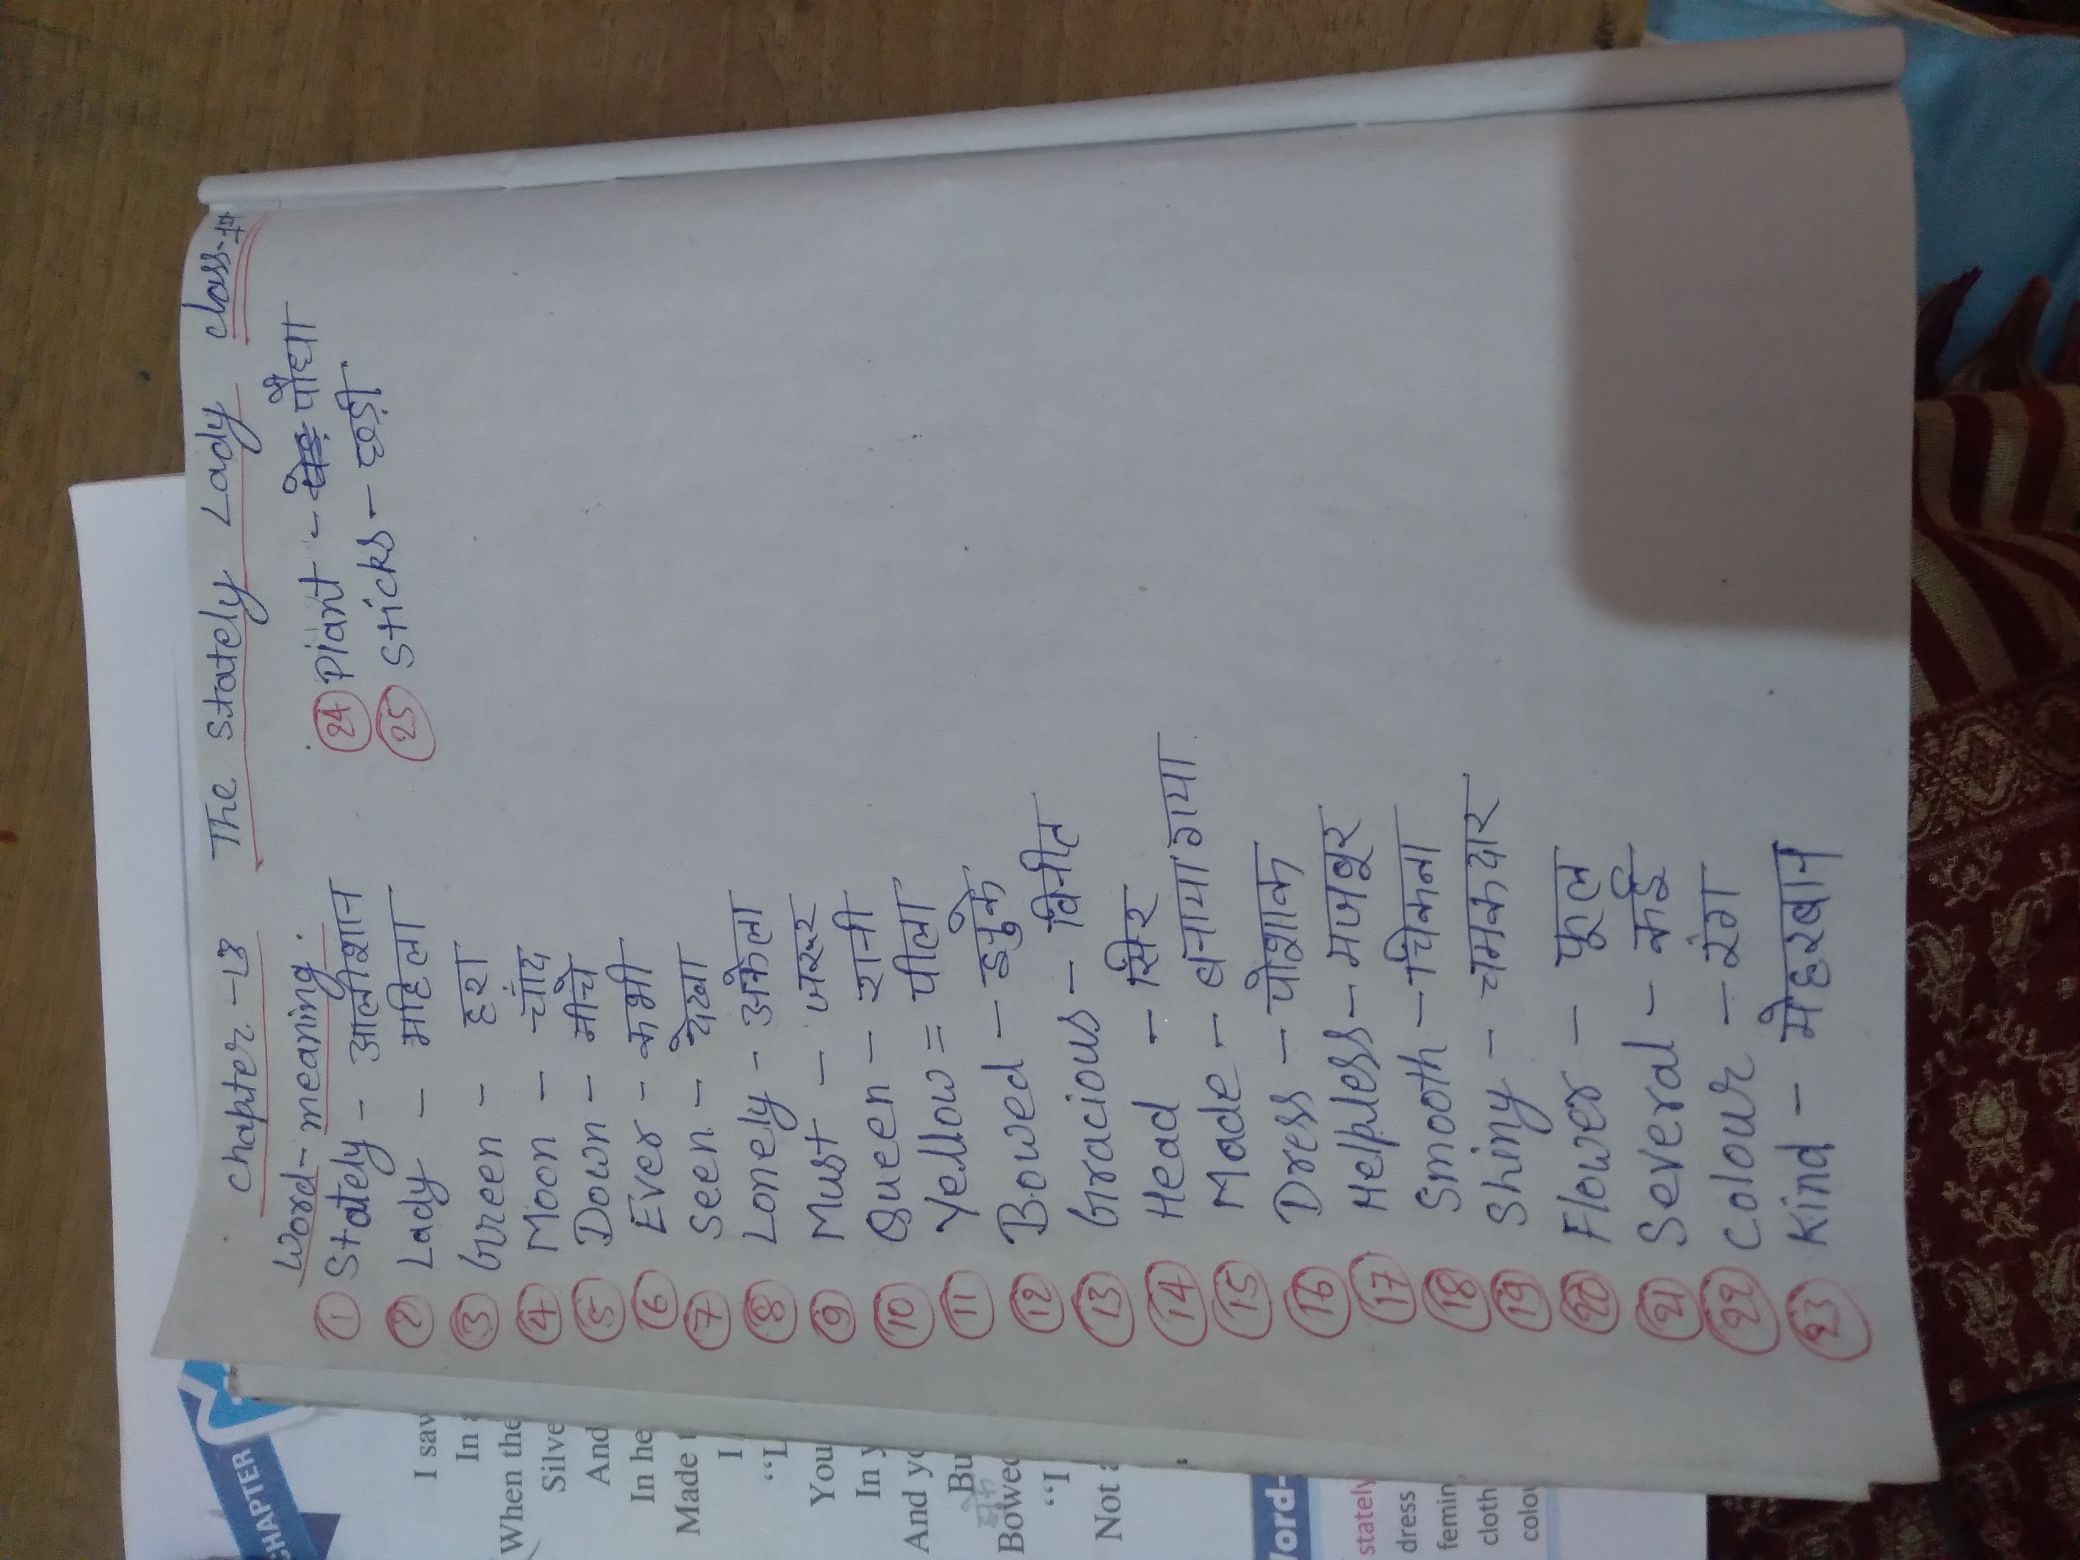 Chapter-13 The Stately Lady class-
Word-meaning.
① Stately - आलीशान
② Lady - महिला
③ Green - हरा
④ Moon - चाँद
⑤ Down - नीचे
⑥ Ever - कभी
⑦ Seen - देखा
⑧ Lonely - अकेला
⑨ Must - जरूर
⑩ Queen - रानी
⑪ Yellow = पीला
⑫ Bowed - झुके
⑬ Gracious - विनीत
⑭ Head - सिर
⑮ Made - बनाया गया
⑯ Dress - पोशाक
⑰ Helpless - मजबूर
⑱ Smooth - चिकना
⑲ Shiny - चमकदार
⑳ Flower - फूल
㉑ Several - कई
㉒ Colour - रंग
㉓ Kind - मेहरबान
㉔ Plant - पौधा
㉕ Sticks - छड़ी
CHAPTER
I saw
In
When the
Silve
And
In he
Made
I
"L
You
In y
And yo
Bu
झुके
Bowed
"I
Not a
Word-
stately
dress
femin
cloth
colou